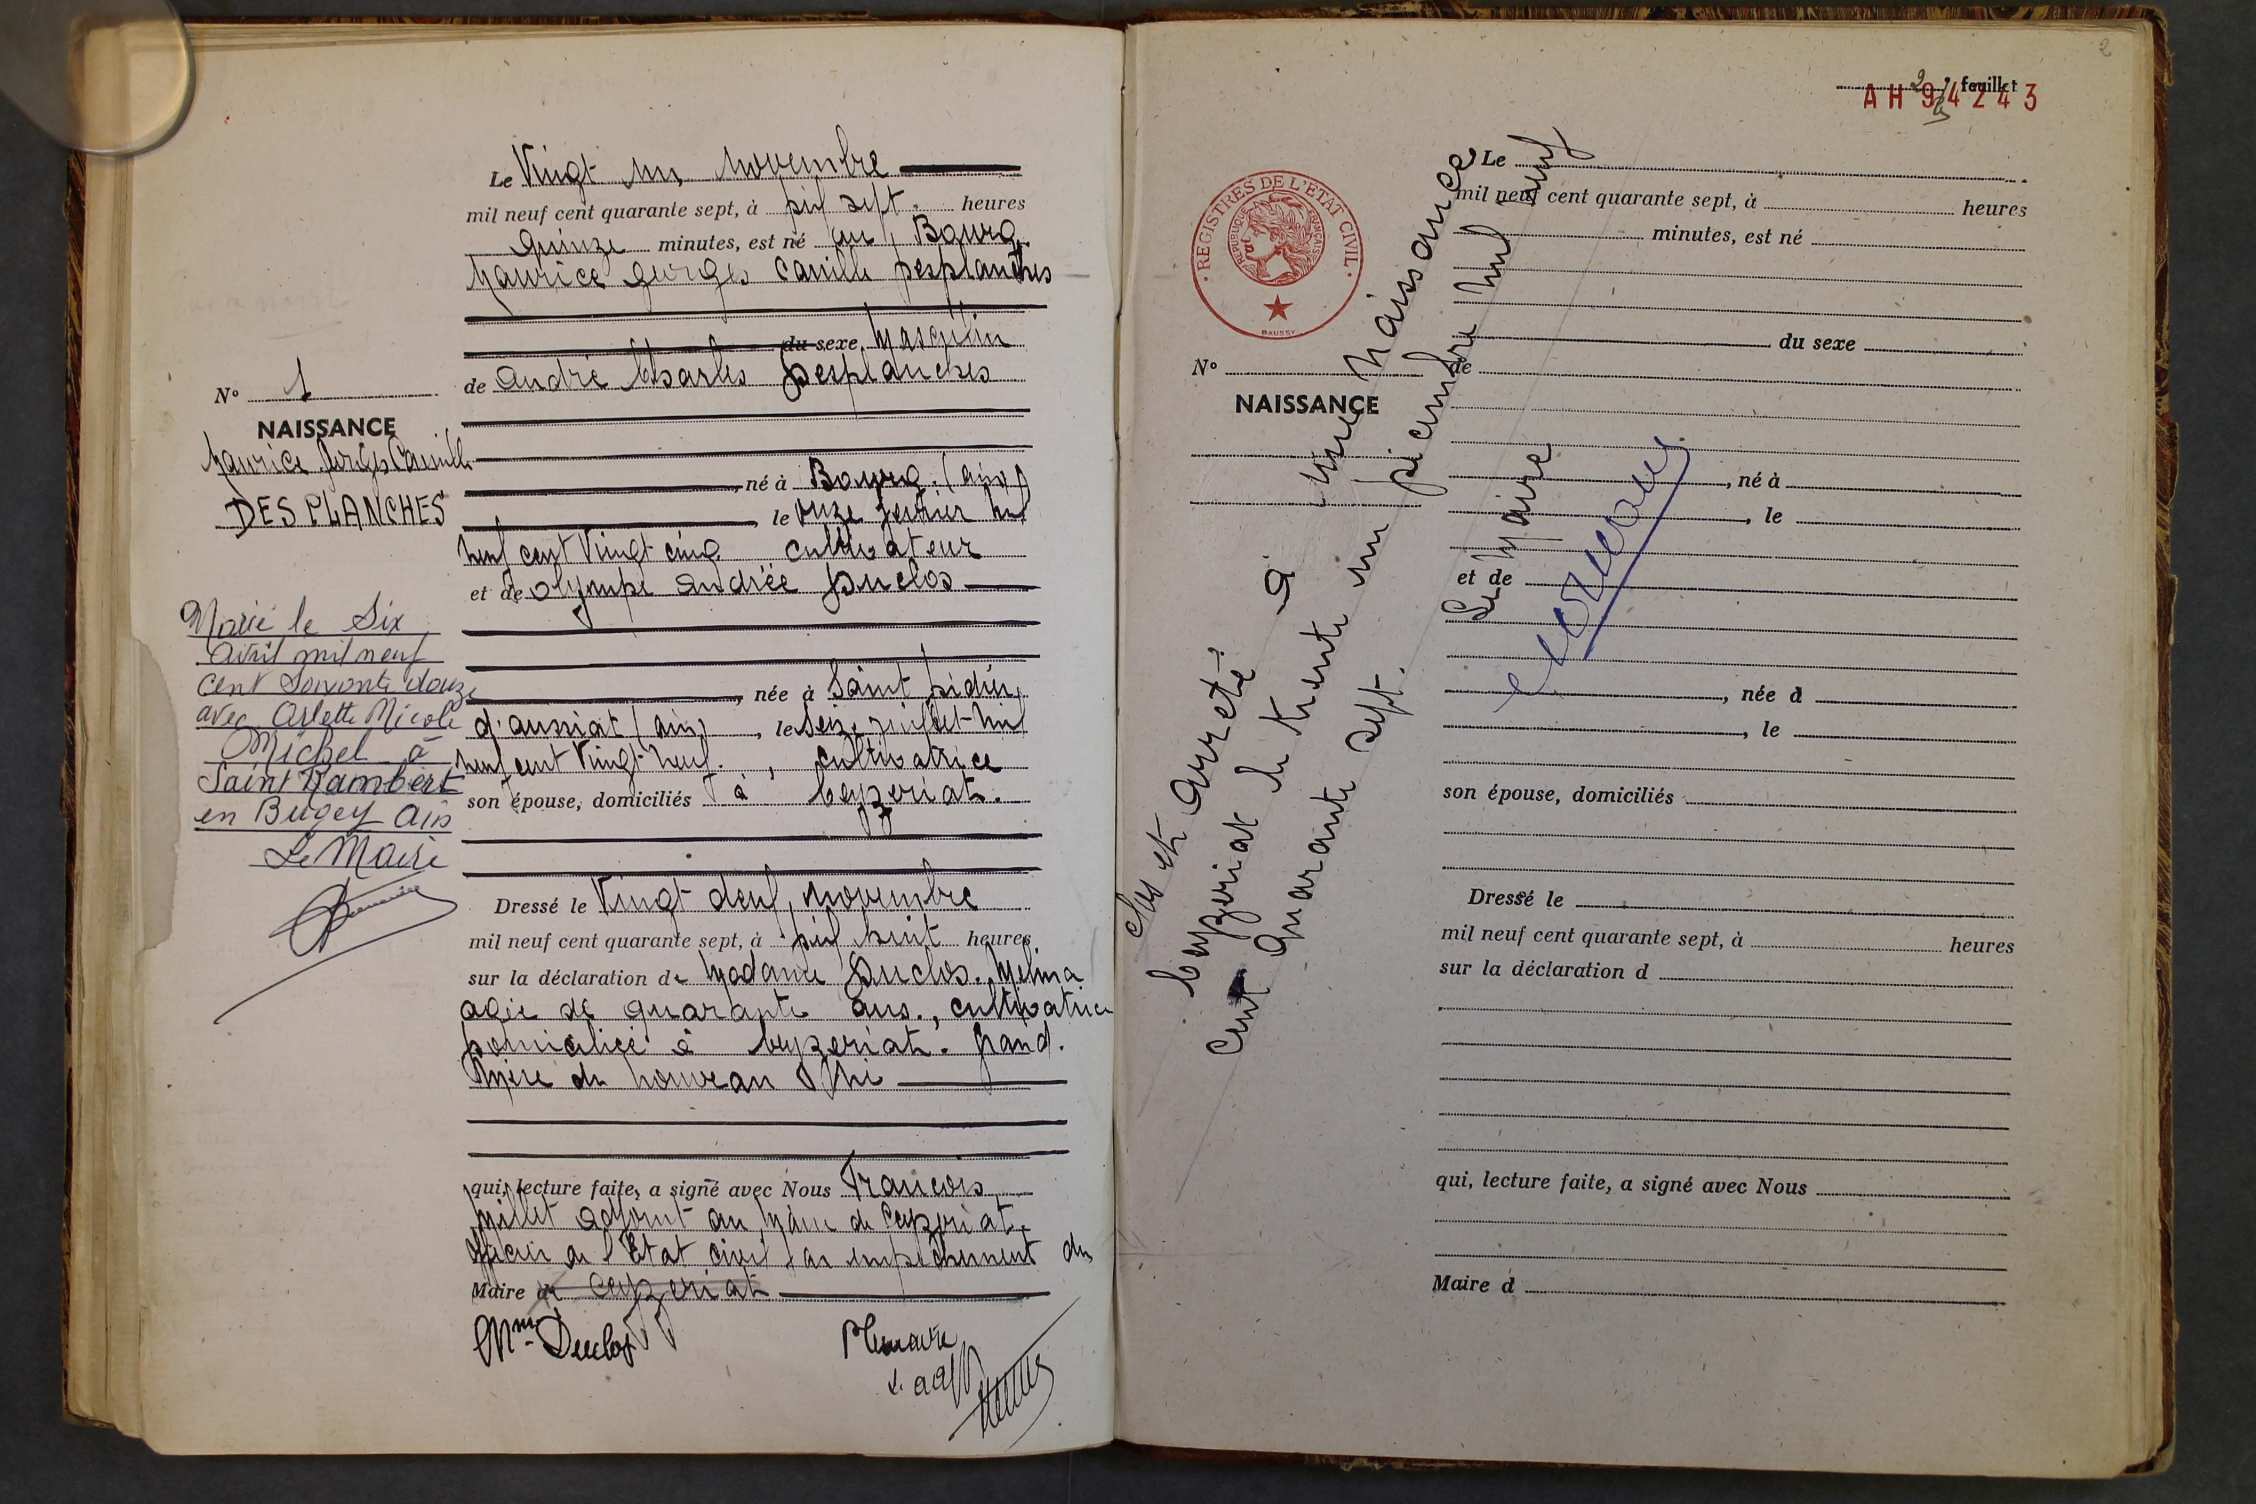 Le Vingt un novembre
mil neuf cent quarante sept, à dix sept heures
quinze minutes, est né au Bourg
Maurice Georges Camille Desplanches
du sexe Masculin
de André Charles Desplanches
né à Bourg (Ain)
le onze février mil
neuf cent Vingt cinq cultivateur
et de Olympe Andrée Duclos
née à Saint Didier
d'aussiat (ain), le seize juillet mil
neuf cent Vingt-neuf, cultivatrice
son épouse, domiciliés à Ceyzériat.
Dressé le Vingt deux novembre
mil neuf cent quarante sept, à dix huit heures
sur la déclaration de Madame Duclos Melina
agée de quarante ans, cultivatrice
domiciliée à Ceyzériat. Grand
Mère du nouveau Né
qui, lecture faite, a signé avec Nous François
Millet adjoint au Maire de Ceyzériat
officier de l'Etat civil par empêchement du
Maire de Ceyzériat
Mme Duclos
P le maire
L'adj
N° 1
NAISSANCE
Maurice Georges Camille
DESPLANCHES
Marié le Six
avril mil neuf
cent soixante douze
avec Arlette Nicole
Michel à
Saint Rambert
en Bugey Ain
Le Maire
2
2 feuillet
AH 94243
REGISTRES DE L'ETAT CIVIL
REPUBLIQUE FRANÇAISE
BAUSSY
N°
NAISSANCE
Le
mil neuf cent quarante sept, à heures
minutes, est né
du sexe
de
, né à
, le
et de
, née à
, le
son épouse, domiciliés
Dressé le
mil neuf cent quarante sept, à heures
sur la déclaration d
qui, lecture faite, a signé avec Nous
Maire d
Clos et arreté à une Naissance
Ceyzériat le trente un Décembre mil neuf
cent quarante sept.
Le Maire